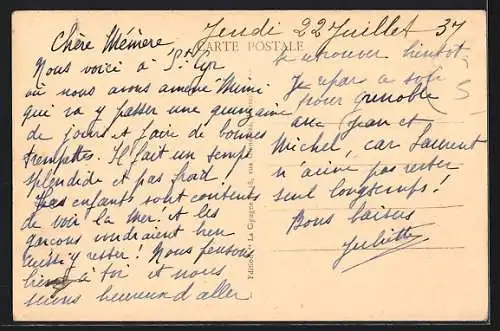 Jeudi 22 Juillet 37
CARTE POSTALE
Chère Mémère
Nous voici à St Cyr
où nous avons amené Mimi
qui va y passer une quinzaine
de jours et faire de bonnes
trempettes. Il fait un temps
splendide et pas froid
Les enfants sont contents
de voir la mer! et les
garçons voudraient bien
aussi y rester! Nous pensons
bien à toi et nous
sommes heureux d'aller
te retrouver bientôt
Je repars ce soir
pour Grenoble
avec Jean et
Michel, car Laurent
n'aime pas rester
seul longtemps!
Bons baisers
Juliette
Editions La Cigogne